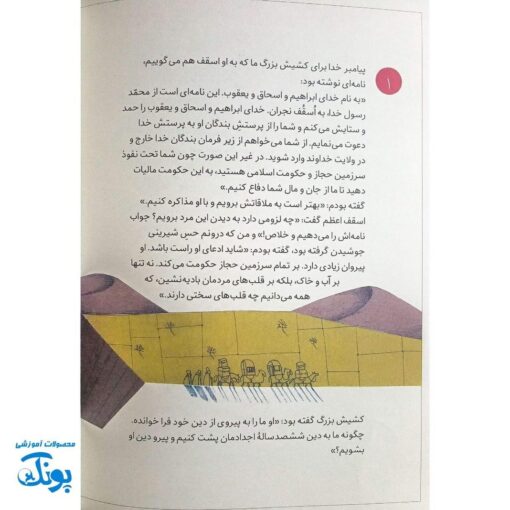 ۱
پیامبر خدا برای کشیش بزرگ ما که به او اسقف هم می‌گوییم،
نامه‌ای نوشته بود:
«به نام خدای ابراهیم و اسحاق و یعقوب. این نامه‌ای است از محمّد
رسول خدا، به اُسقُف نجران. خدای ابراهیم و اسحاق و یعقوب را حمد
و ستایش می‌کنم و شما را از پرستش بندگان او به پرستش خدا
دعوت می‌نمایم. از شما می‌خواهم از زیر فرمان بندگان خدا خارج و
در ولایت خداوند وارد شوید. در غیر این صورت چون شما تحت نفوذ
سرزمین حجاز و حکومت اسلامی هستید، به این حکومت مالیات
دهید تا ما از جان و مال شما دفاع کنیم.»
گفته بودم: «بهتر است به ملاقاتش برویم و با او مذاکره کنیم.»
اسقف اعظم گفت: «چه لزومی دارد به دیدن این مرد برویم؟ جواب
نامه‌اش را می‌دهیم و خلاص!» و من که درونم حس شیرینی
جوشیدن گرفته بود، گفته بودم: «شاید ادعای او راست باشد. او
پیروان زیادی دارد. بر تمام سرزمین حجاز حکومت می‌کند. نه تنها
بر آب و خاک، بلکه بر قلب‌های مردمان بادیه‌نشین، که
همه می‌دانیم چه قلب‌های سختی دارند.»
کشیش بزرگ گفته بود: «او ما را به پیروی از دین خود فرا خوانده.
چگونه ما به دین ششصدسالهٔ اجدادمان پشت کنیم و پیرو دین او
بشویم؟»
محصولات آموزشی
پونک